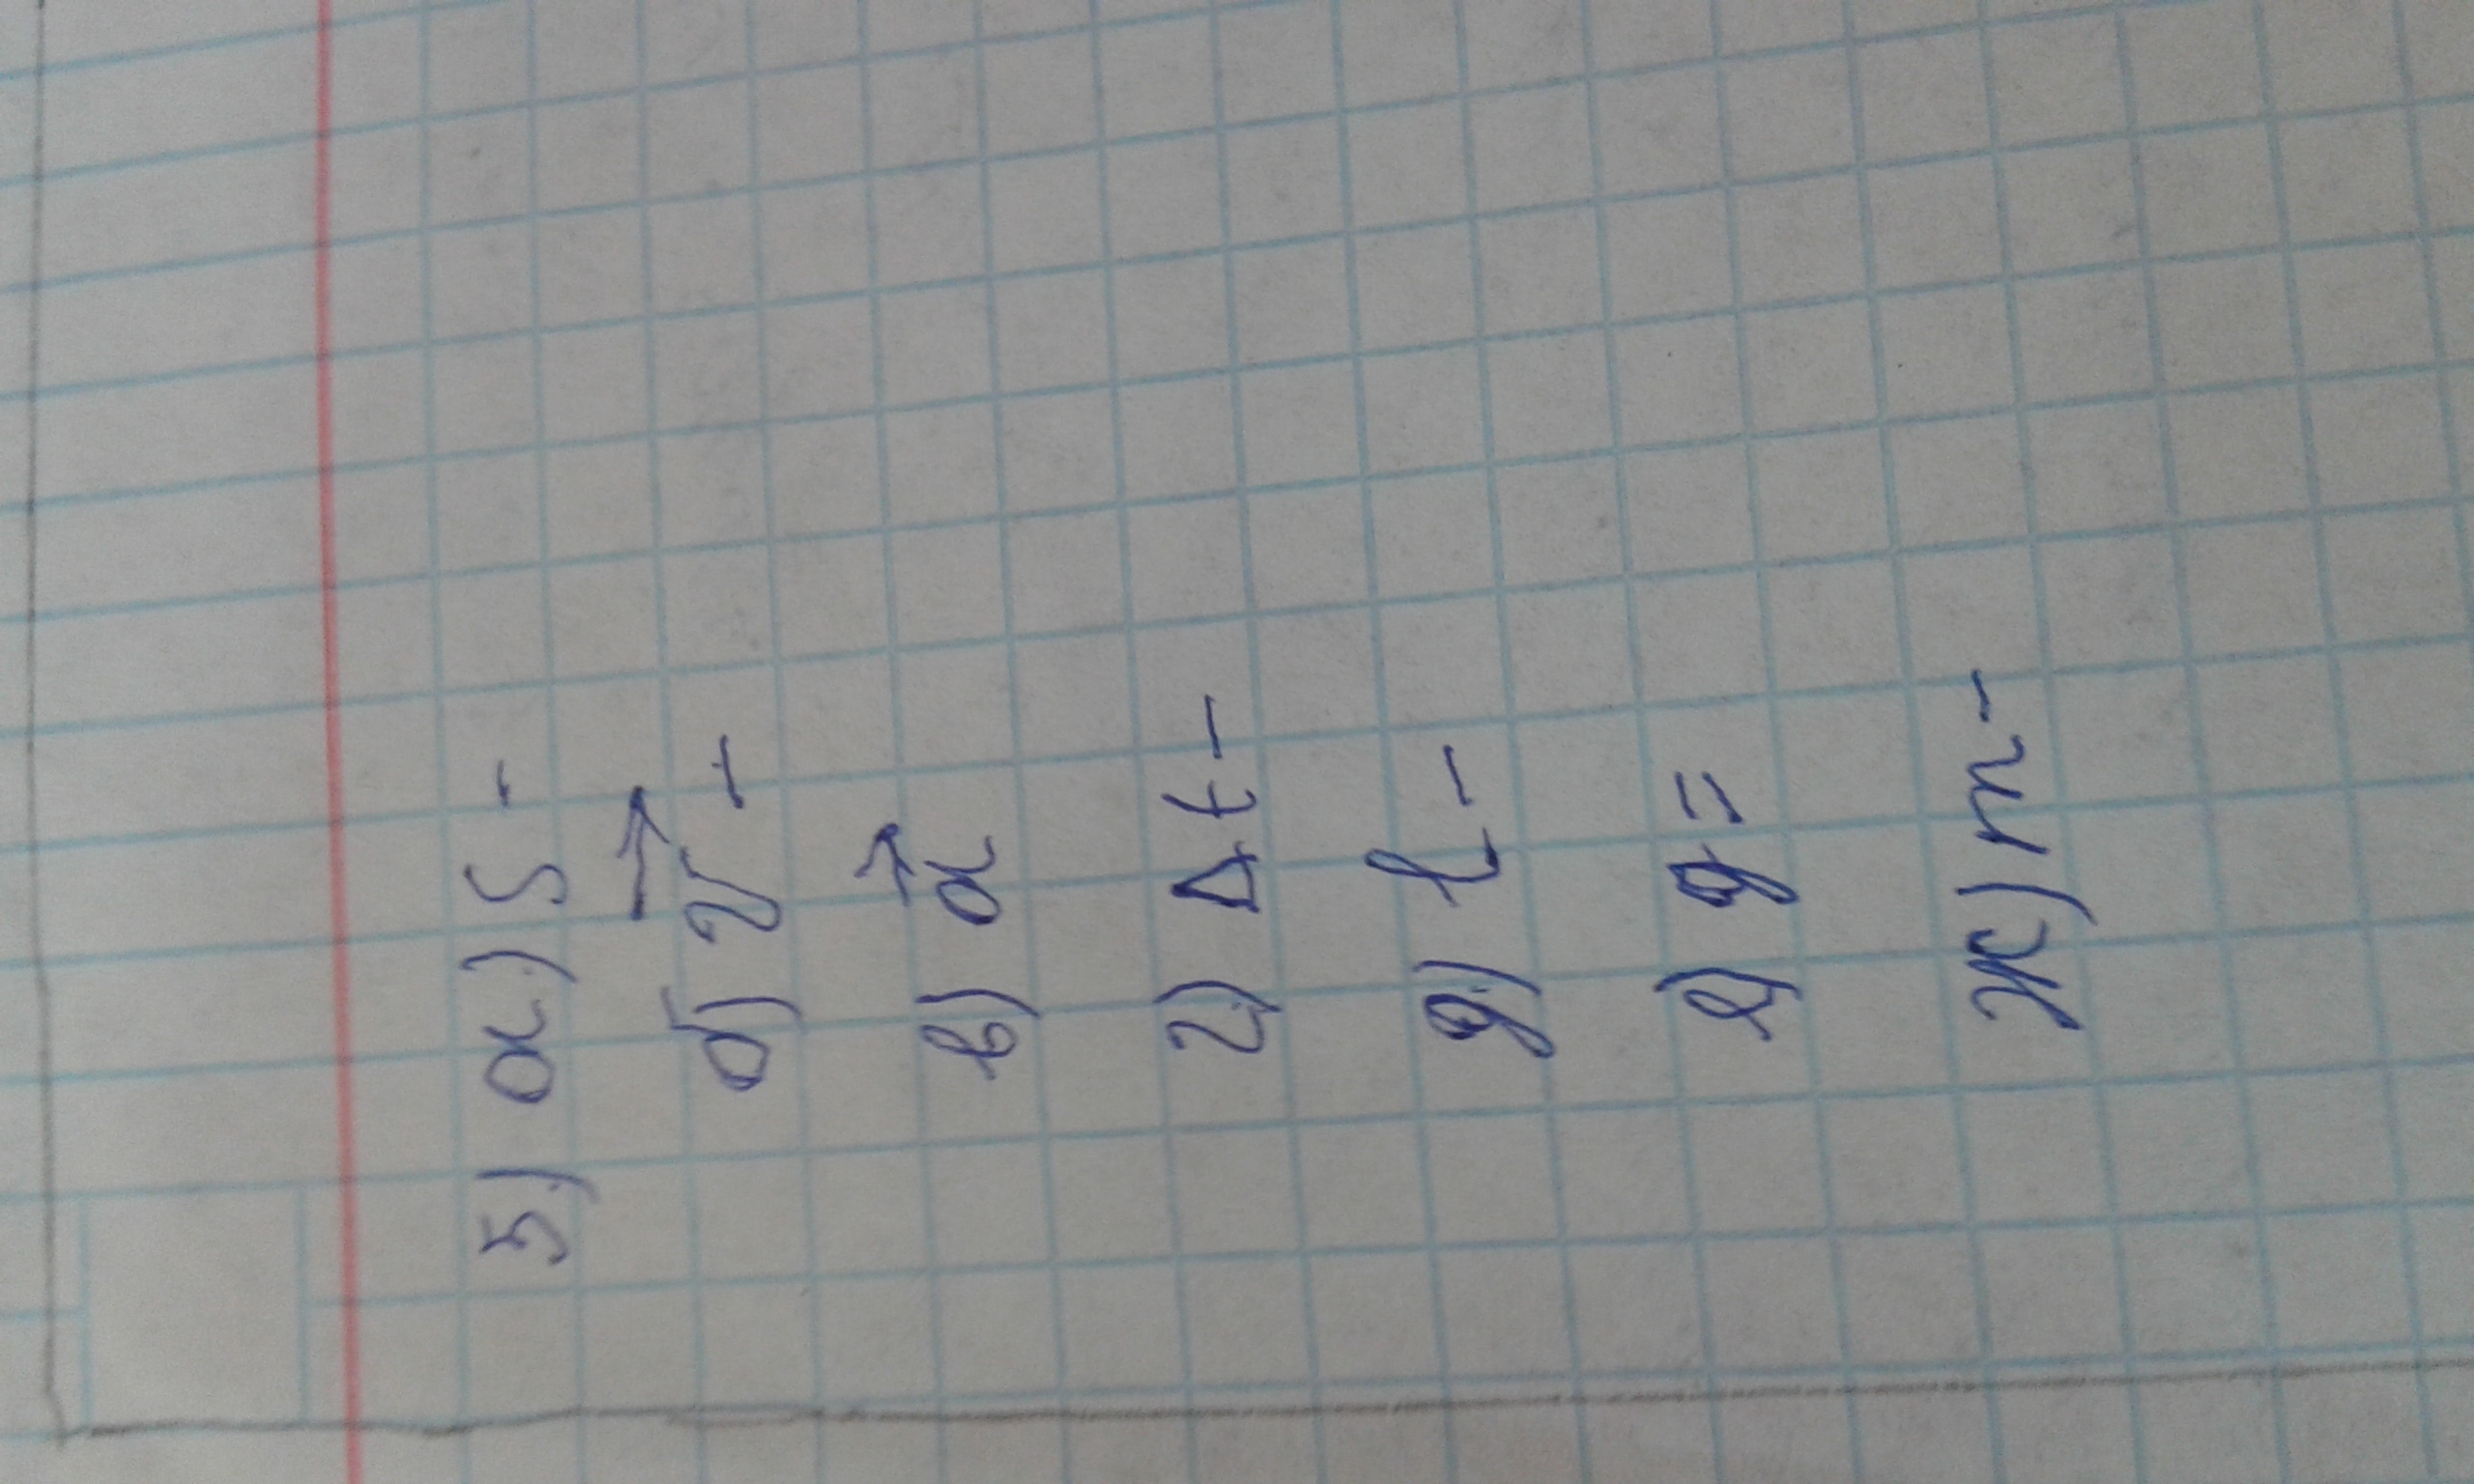 5) а) S -
б) v⃗ -
в) a⃗
г) Δt -
д) l -
е) g =
ж) m -